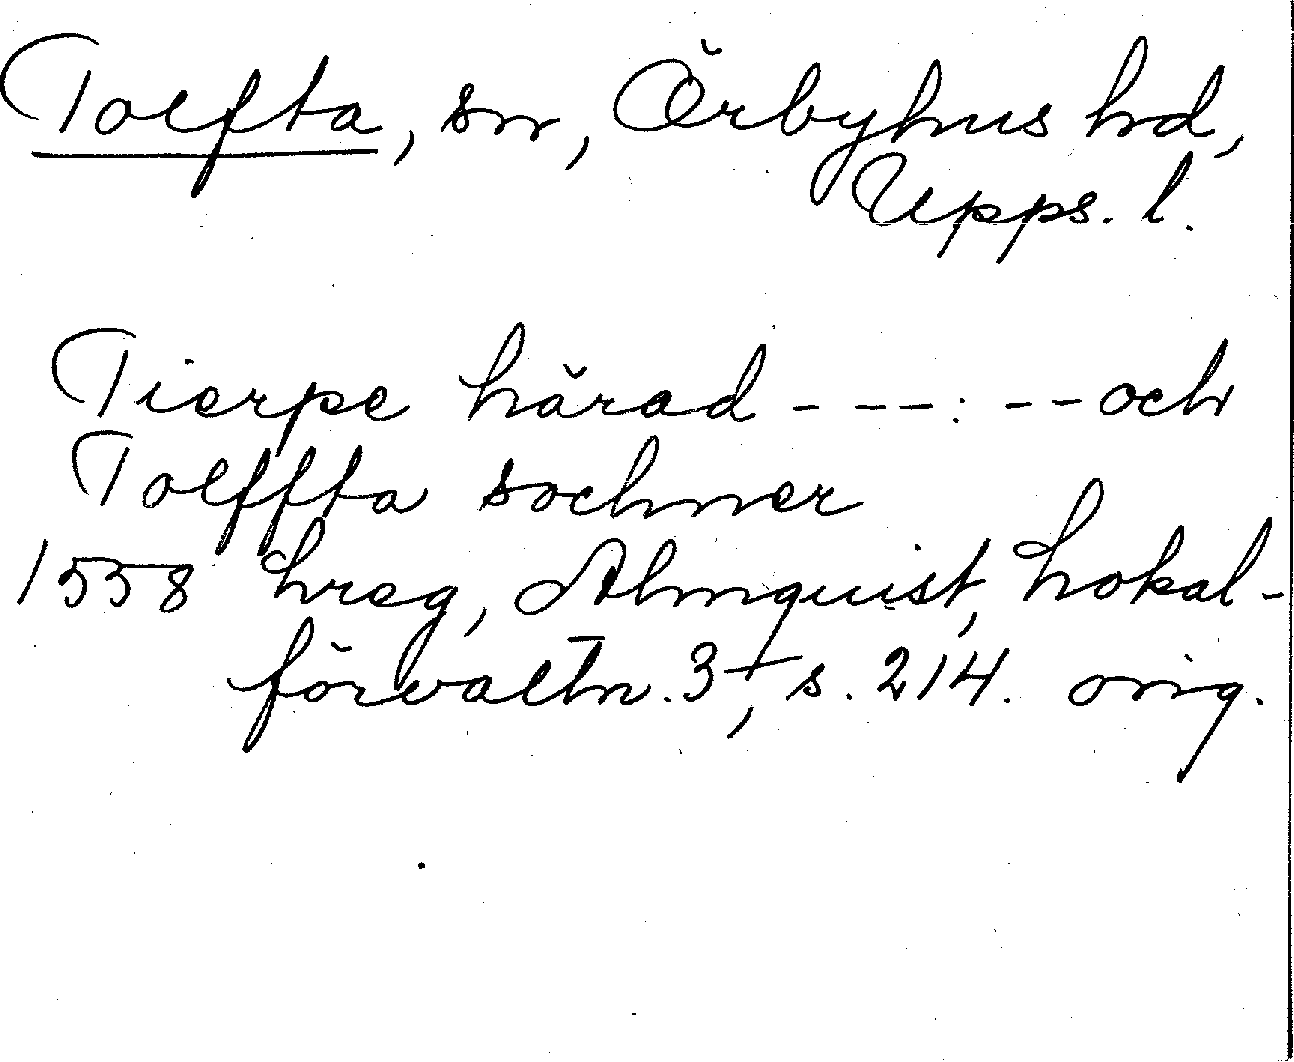 Tolfta, sn, Örbyhus hd,
Upps. l.
Tierpe härad - - - - : - - - och
Tolffta sochner
1558 hreg, Almquist, Lokal-
förvaltn. 3, s. 214. orig.